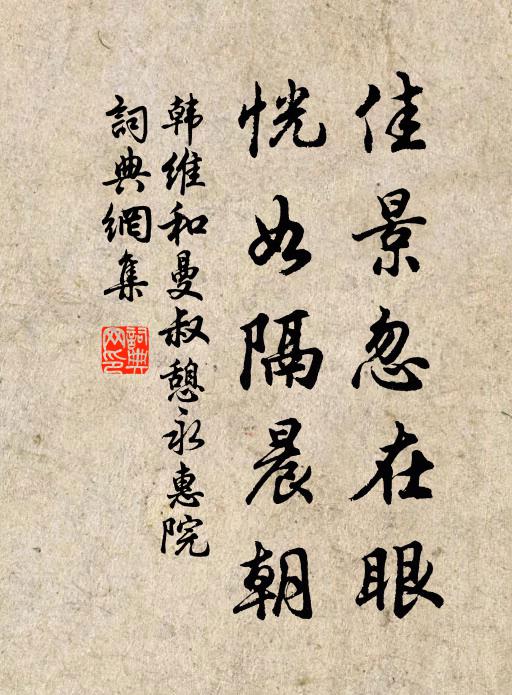 佳景忽在眼
恍如隔晨朝
韩维和曼叔憩永惠院
詞典網集
詞典网印